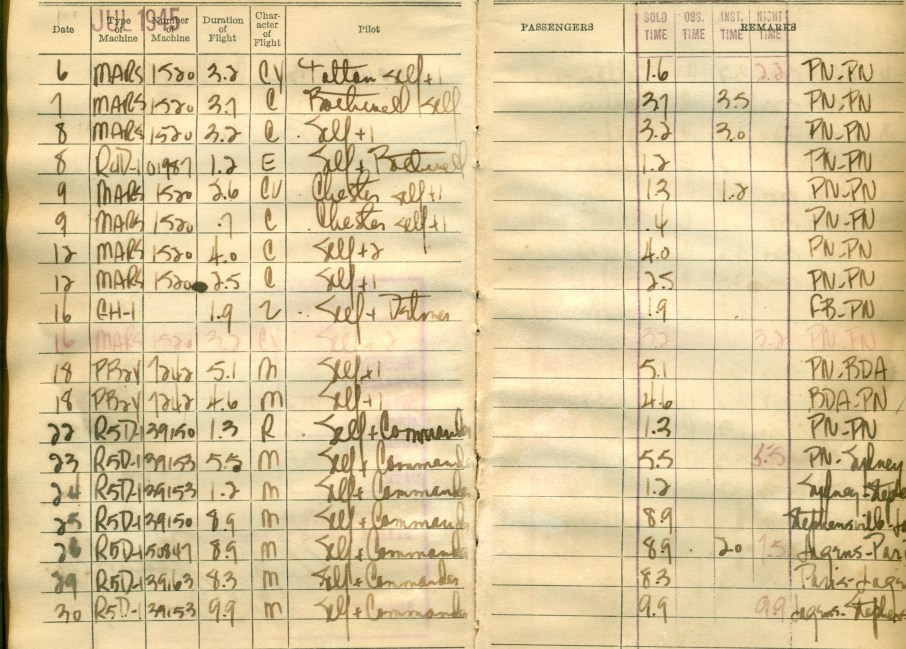 JUL 1945
Date Type of Machine Number of Machine Duration of Flight Char-acter of Flight Pilot PASSENGERS SOLO TIME OBS. TIME INST. TIME NIGHT TIME REMARKS
6 MARS 1520 3.2 CV self+1 1.6 2.2 PN-PN
7 MARS 1520 3.7 C Bothwell self 3.7 3.5 PN-PN
8 MARS 1520 3.2 C Self+1 3.2 3.0 PN-PN
8 01987 1.2 E Self+Bothwell 1.2 PN-PN
9 MARS 1520 2.6 CV Chester self+1 1.3 1.2 PN-PN
9 MARS 1520 .7 C Chester self+1 .4 PN-PN
12 MARS 1520 4.0 C Self+2 4.0 PN-PN
12 MARS 1520 2.5 C Self+1 2.5 PN-PN
16 GH-1 1.9 Z Self+ 1.9 FB-PN
16 MARS 1520 3.2 CV Self+2 3.2 3.2 PN-PN
18 PB2Y 7242 5.1 M Self+1 5.1 PN-BDA
18 PB2Y 7242 4.6 M Self+1 4.6 BDA-PN
22 R5D-1 39150 1.3 R Self+Commander 1.3 PN-PN
23 R5D-1 39153 5.5 M Self+Commander 5.5 5.5 PN-Sydney
24 R5D-1 39153 1.2 M Self+Commander 1.2 Sydney-Steph
25 R5D-1 39150 8.9 M Self+Commander 8.9 Stephensville-La
26 R5D-1 50847 8.9 M Self+Commander 8.9 2.0 7.5 Lagens-Pari
29 R5D-1 39163 8.3 M Self+Commander 8.3 Paris-Lagen
30 R5D-1 39153 9.9 M Self+Commander 9.9 9.9 Lagens-Stephens